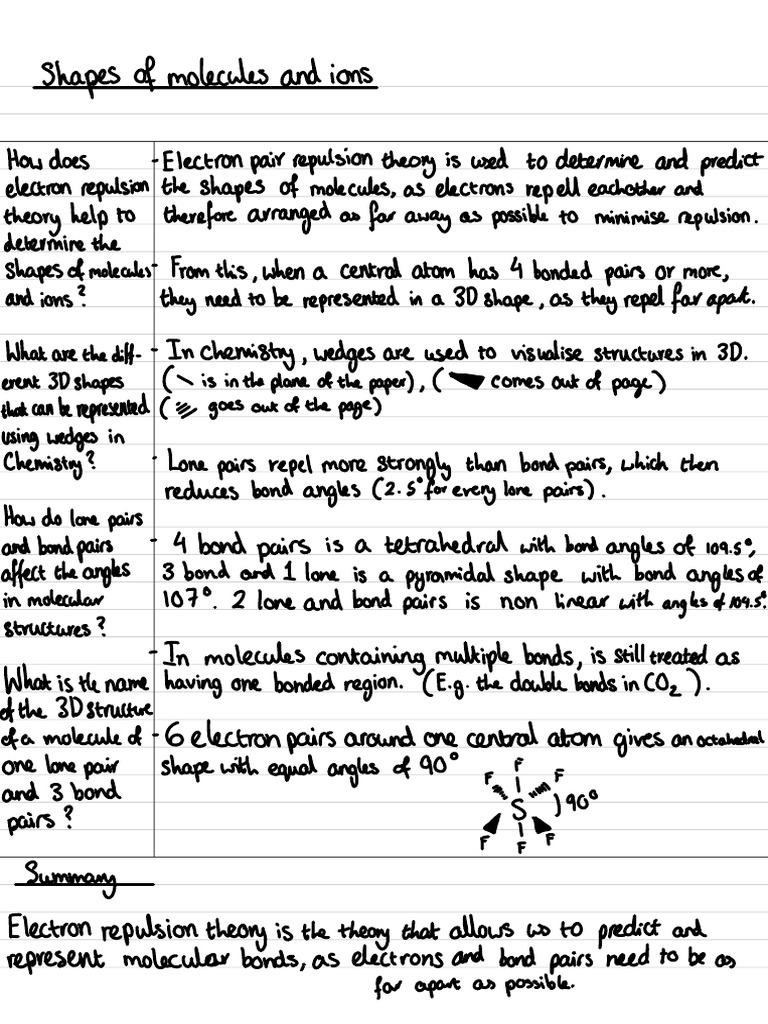 Shapes of molecules and ions
How does
electron repulsion
theory help to
determine the
Shapes of molecules
and ions?
What are the diff-
erent 3D shapes
that can be represented
using wedges in
Chemistry?
How do lone pairs
and bond pairs
affect the angles
in molecular
structures?
What is the name
of the 3D structure
of a molecule of
one lone pair
and 3 bond
pairs?
- Electron pair repulsion theory is used to determine and predict
the shapes of molecules, as electrons repell eachother and
therefore arranged as far away as possible to minimise repulsion.
- From this, when a central atom has 4 bonded pairs or more,
they need to be represented in a 3D shape, as they repel far apart.
- In Chemistry, wedges are used to visualise structures in 3D.
( is in the plane of the paper), ( comes out of page)
( goes out of the page)
- Lone pairs repel more strongly than bond pairs, which then
reduces bond angles (2.5° for every lone pairs).
- 4 bond pairs is a tetrahedral with bond angles of 109.5°,
3 bond and 1 lone is a pyramidal shape with bond angles of
107°. 2 lone and bond pairs is non linear with angles of 104.5°.
- In molecules containing multiple bonds, is still treated as
having one bonded region. (E.g. the double bonds in CO2).
- 6 electron pairs around one central atom gives an octahedral
shape with equal angles of 90°
F
F F
S 90°
F F F
Summary
Electron repulsion theory is the theory that allows us to predict and
represent molecular bonds, as electrons and bond pairs need to be as
far apart as possible.